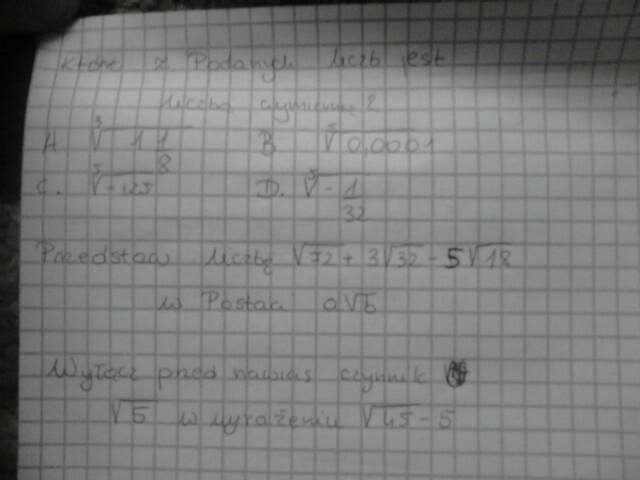 Które z Podanych liczb jest
liczbą wymierną?
A. ∛1 1/8 B ⁵√0,0001
C. ⁵√-125 D. ⁵√-1/32
Przedstaw liczbę √72 + 3√32 - 5√18
w Postaci a√b
Wyłącz przed nawias czynnik
√5 w wyrażeniu √45 - 5